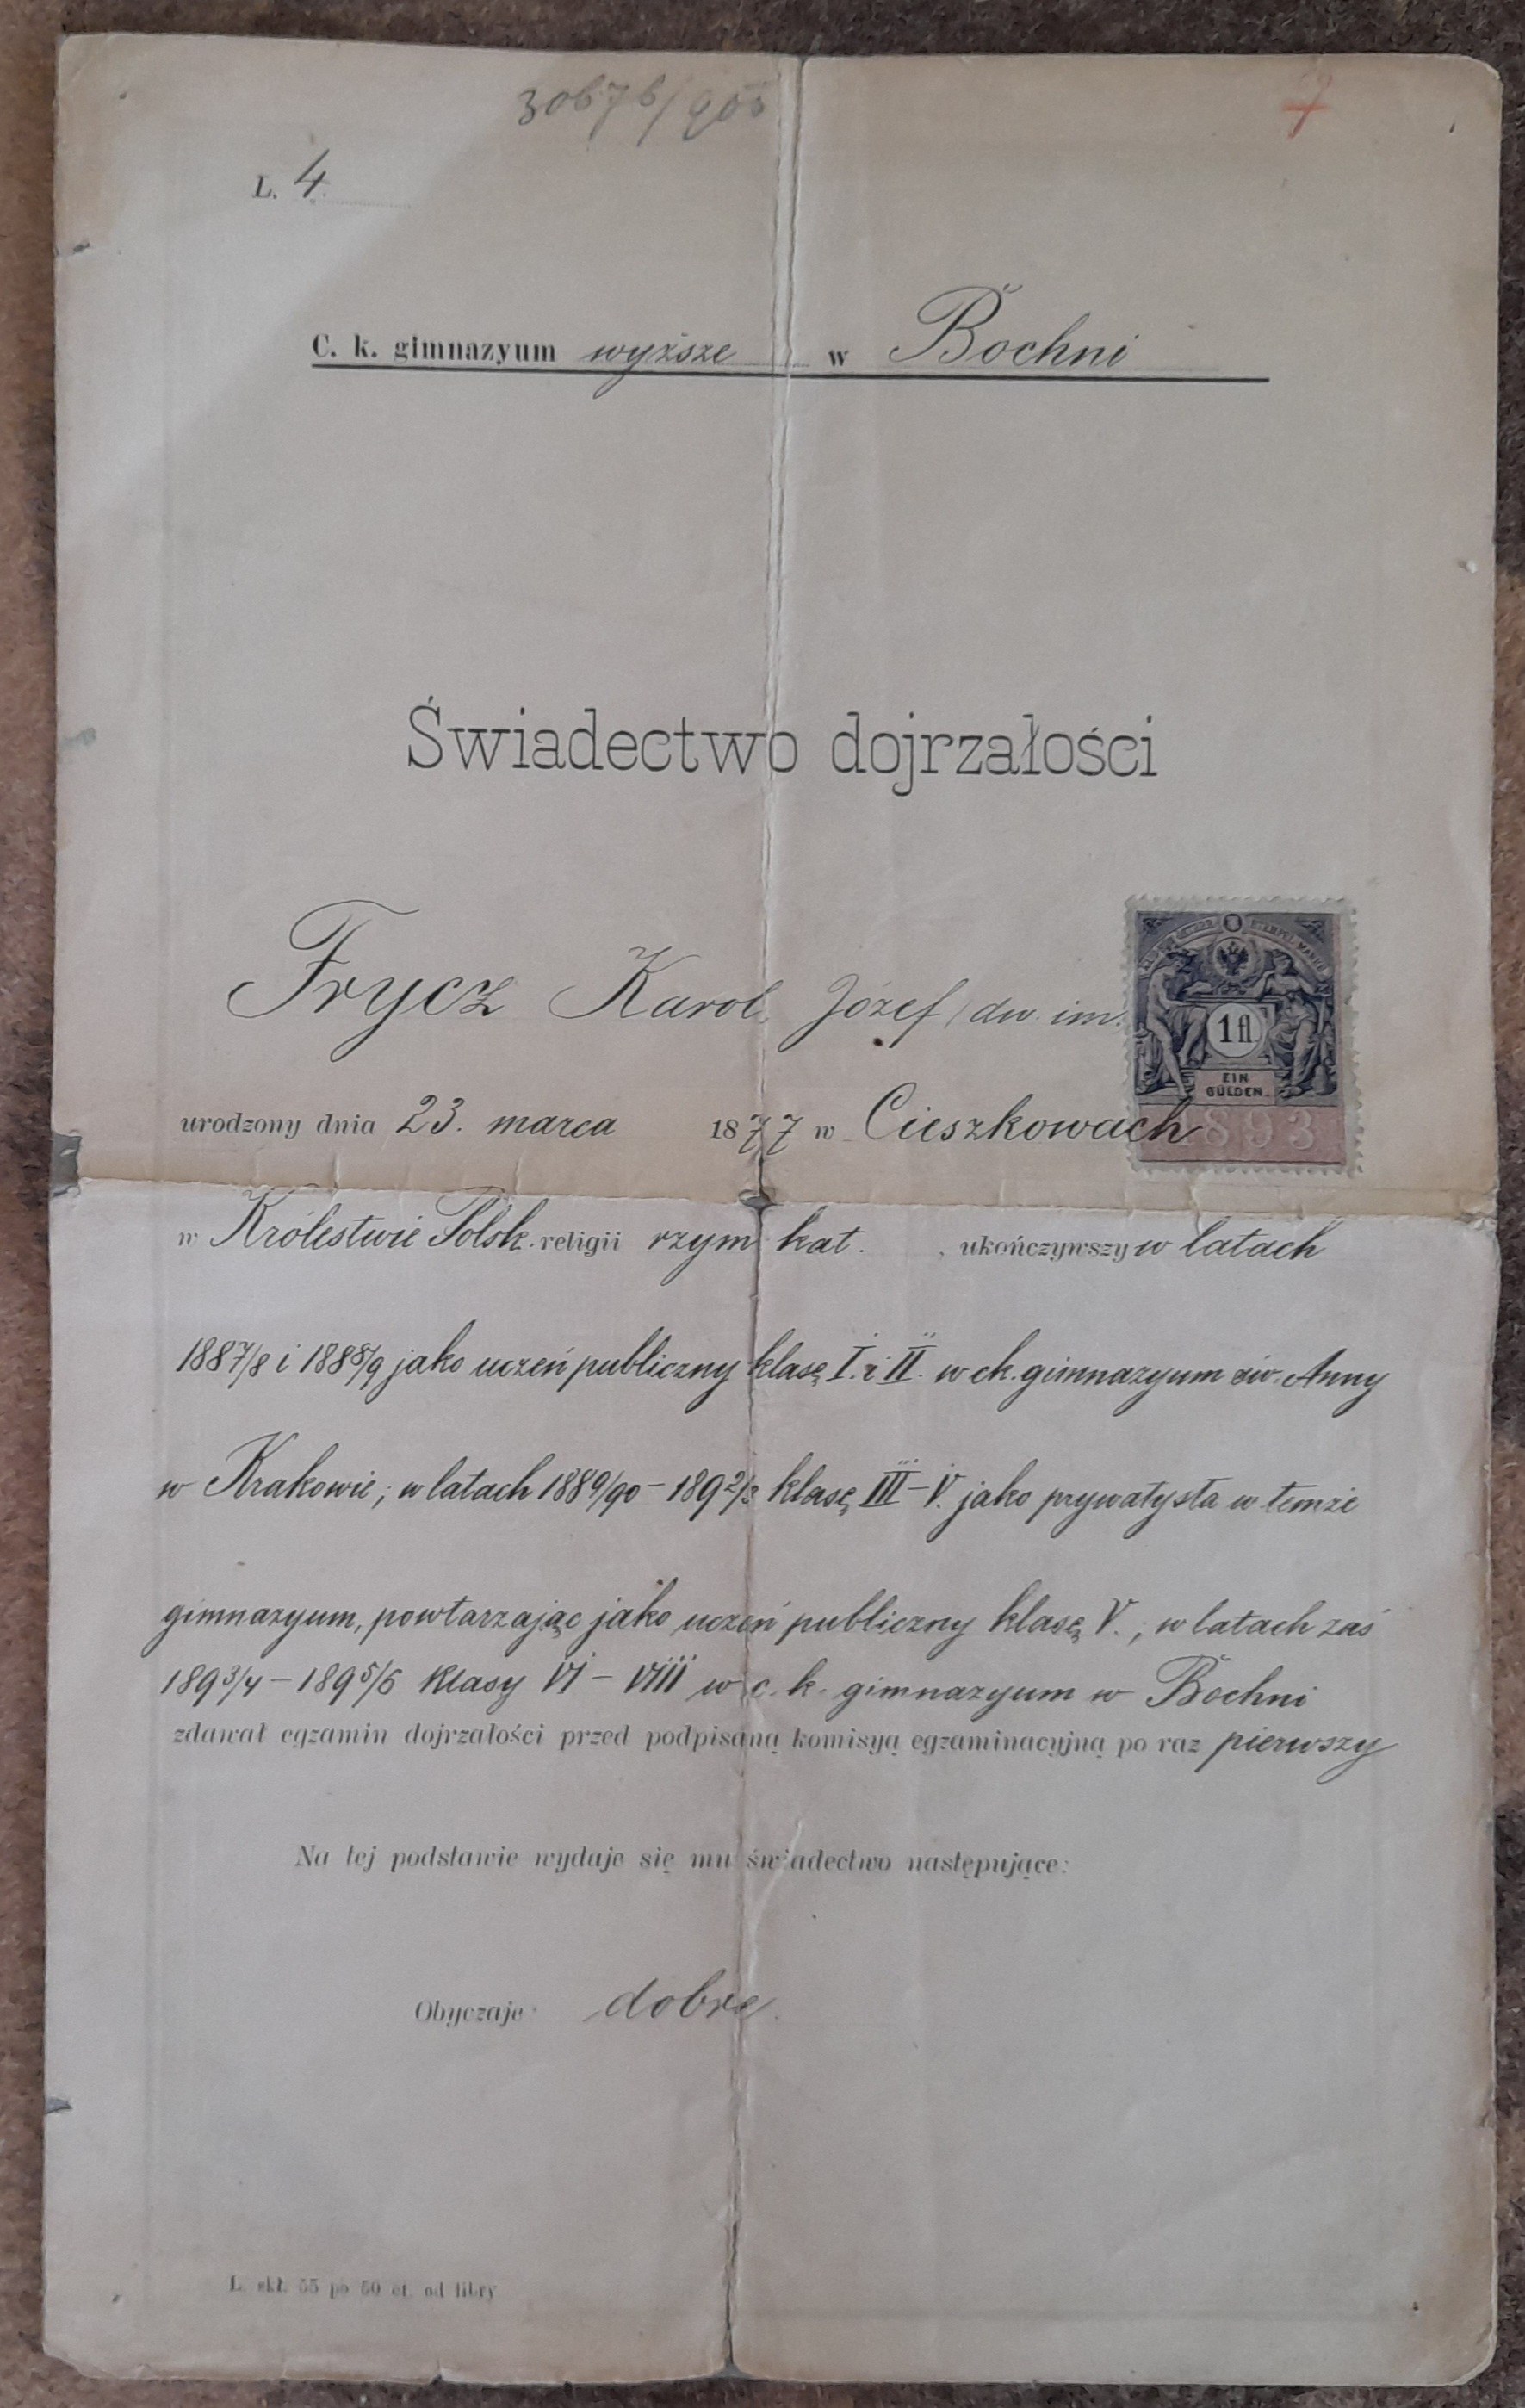 30676/900
7
L. 4.
C. k. gimnazyum wyższe w Bochni
Świadectwo dojrzałości
Frycz Karol, Józef (dw. im.
1 fl.
EIN
GULDEN.
urodzony dnia 23. marca 1877 w Cieszkowach
1893
w Królestwie Polsk. religii rzym kat. , ukończywszy w latach
1887/8 i 1888/9 jako uczeń publiczny klasę I. i II. w ck. gimnazyum św. Anny
w Krakowie; w latach 1889/90 – 1892/3 klasę III – V. jako prywatysta w temże
gimnazyum, powtarzając jako uczeń publiczny klasę V. ; w latach zaś
1893/4 – 1895/6 klasy VI – VIII w c. k. gimnazyum w Bochni
zdawał egzamin dojrzałości przed podpisaną komisyą egzaminacyjną po raz pierwszy
Na tej podstawie wydaje się mu świadectwo następujące:
Obyczaje: dobre.
L. skł. 55 po 50 ct. od libry